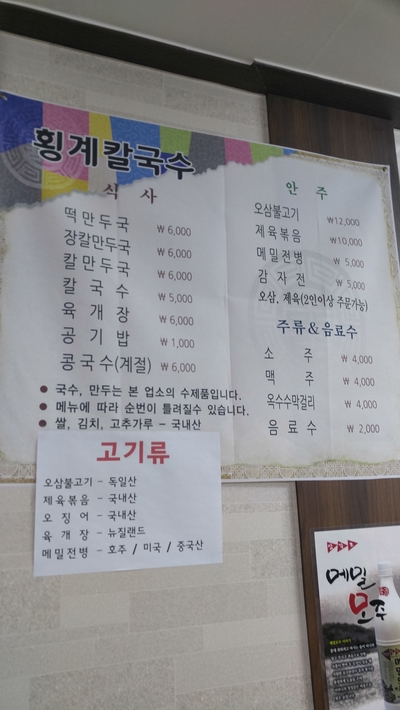 횡계칼국수
식 사
떡만두국 ₩ 6,000
장칼만두국 ₩ 6,000
칼만두국 ₩ 6,000
칼국수 ₩ 5,000
육개장 ₩ 6,000
공기밥 ₩ 1,000
콩국수(계절) ₩ 6,000
● 국수, 만두는 본 업소의 수제품입니다.
● 메뉴에 따라 순번이 틀려질수 있습니다.
● 쌀, 김치, 고추가루 - 국내산
안 주
오삼불고기 ₩12,000
제육볶음 ₩10,000
메밀전병 ₩ 5,000
감자전 ₩ 5,000
오삼, 제육(2인이상 주문가능)
주류&음료수
소 주 ₩ 4,000
맥 주 ₩ 4,000
옥수수막걸리 ₩ 4,000
음료수 ₩ 2,000
고기류
오삼불고기 - 독일산
제육볶음 - 국내산
오징어 - 국내산
육개장 - 뉴질랜드
메밀전병 - 호주 / 미국 / 중국산
메밀
모주